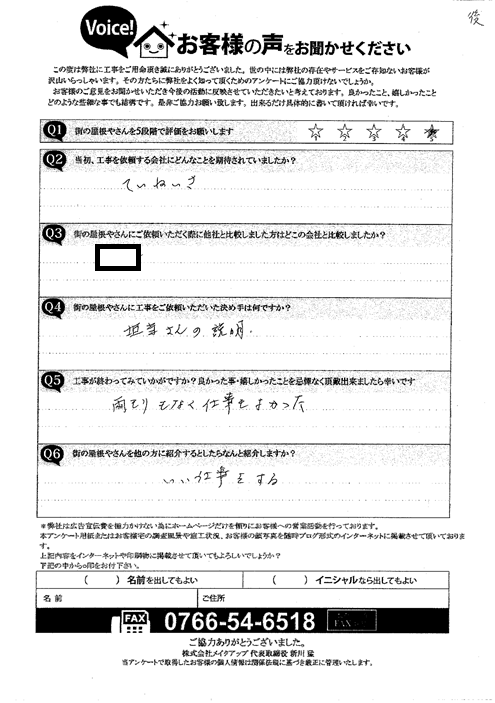 後
Voice!
お客様の声をお聞かせください
この度は弊社に工事をご用命頂き誠にありがとうございました。世の中には弊社の存在やサービスをご存知ないお客様が
沢山いらっしゃいます。その方たちに弊社をよく知って頂くためのアンケートにご協力頂けないでしょうか。
お客様のご意見をお聞かせいただき今後の活動に反映させていただきたいと考えております。良かったこと、嬉しかったこと
どのような些細な事でも結構です。是非ご協力お願い致します。出来るだけ具体的に書いて頂ければ幸いです。
Q1 街の屋根やさんを5段階で評価をお願いします
Q2 当初、工事を依頼する会社にどんなことを期待されていましたか?
ていねいさ
Q3 街の屋根やさんにご依頼いただく際に他社と比較しました方はどこの会社と比較しましたか?
Q4 街の屋根やさんに工事をご依頼いただいた決め手は何ですか?
担当さんの説明.
Q5 工事が終わってみていかがですか?良かった事・嬉しかったことを忌憚なく頂戴出来ましたら幸いです
雨もりもなく仕事もよかった
Q6 街の屋根やさんを他の方に紹介するとしたらなんと紹介しますか?
いい仕事をする
*弊社は広告宣伝費を極力かけない為にホームページだけを頼りにお客様への営業活動を行っております。
本アンケート用紙またはお客様宅の調査風景や施工状況、お客様の顔写真を随時ブログ形式のインターネットに掲載させて頂いております。
上記内容をインターネットや印刷物に掲載させて頂いてもよろしいでしょうか?
下記の中から○印をお付下さい。
( )名前を出してもよい ( )イニシャルなら出してもよい
名前 ご住所
FAX 0766-54-6518 FAX
ご協力ありがとうございました。
株式会社メイクアップ 代表取締役 新川 猛
当アンケートで取得したお客様の個人情報は関係法規に基づき厳正に管理いたします。